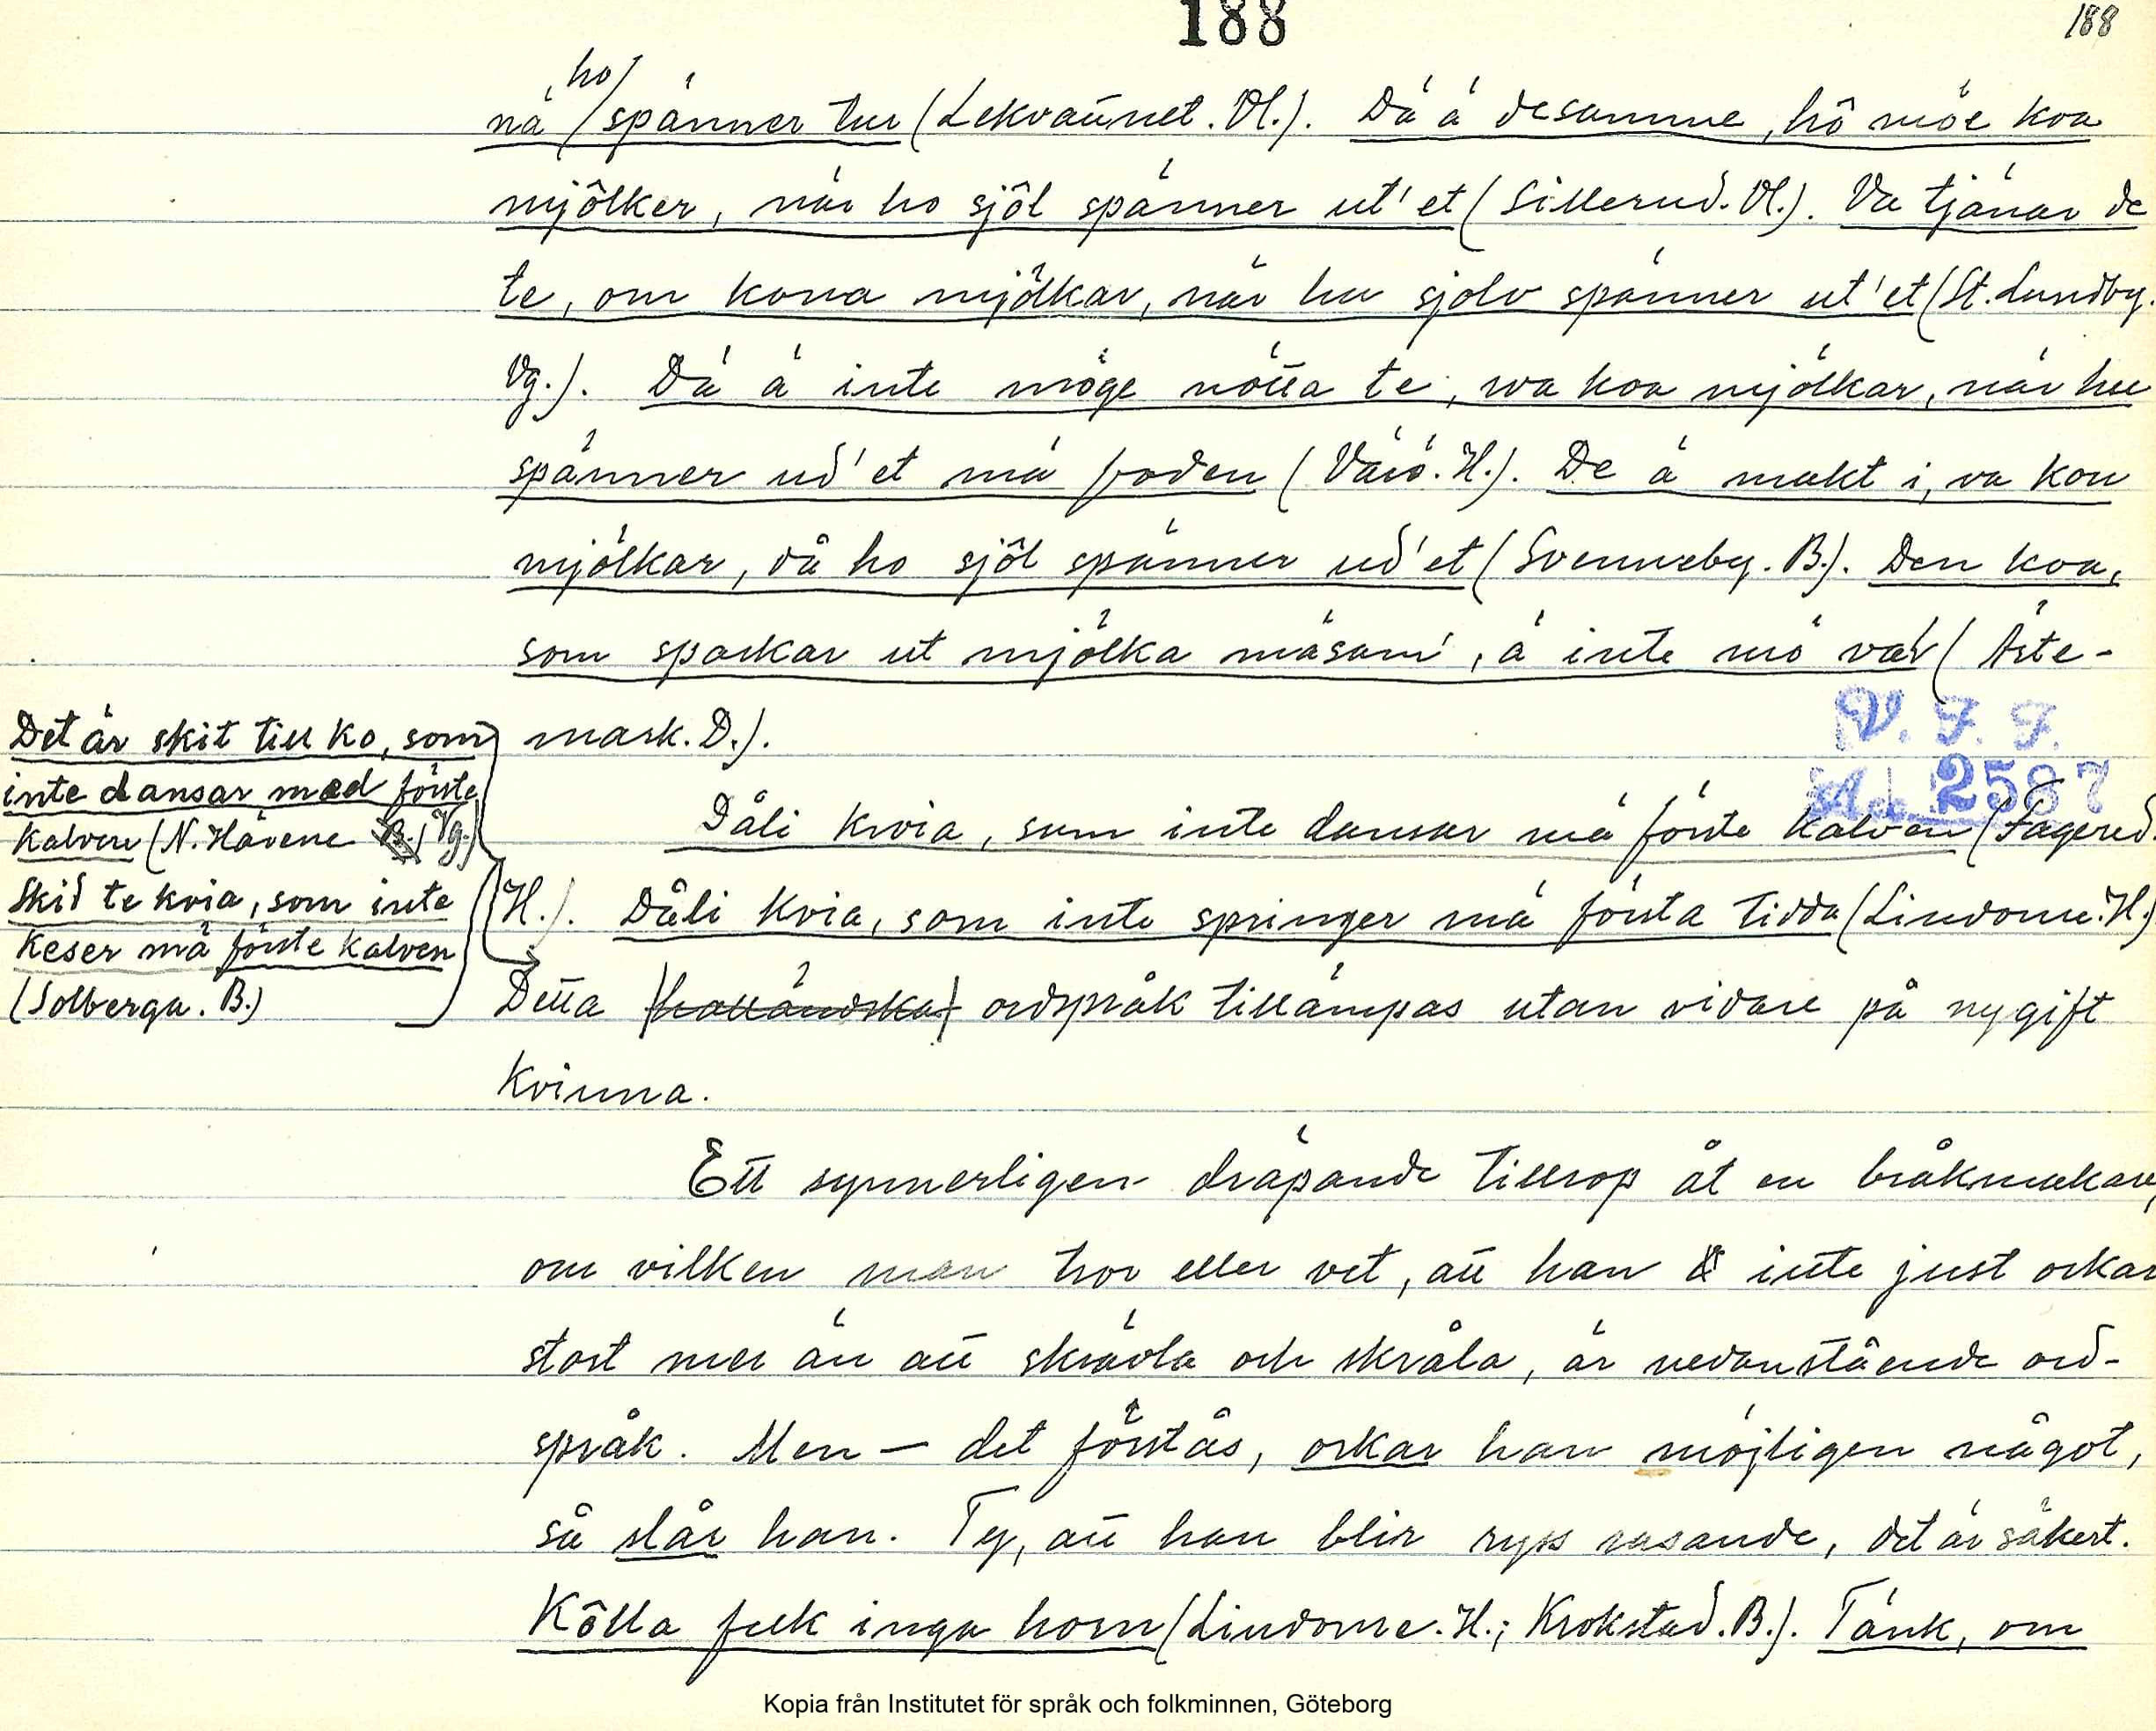 188
188
ho
nä spänner tur (Lekvattnet. Vl.). Dä ä desamme, hô möe koa
mjôlker, när ho sjôl spänner ut'et (Sillerud. Vl.). Va tjänar de
te, om kona mjölkar, när hu sjolv spänner ut'et (St. Lundby.
Vg.). Dä ä inte möge nötta te, va koa mjölkar, när hu
spänner ud'et mä foden (Värö. H.). De ä makt i, va kou
mjölkar, då ho sjôl spänner ud'et (Svenneby. B.). Den koa,
som sparkar ut mjölka mäsam', ä inte mö vär (Ärte-
mark. D.).
V. F. F.
Acc. 2587
Dåli kvia, sum inte dansar mä förste kalven (Fagered.
H.). Dåli kvia, som inte springer mä första tidda (Lindome. H.)
Det är skit till ko, som
inte dansar med förste
kalven (N. Härene B.) Vg.)
Skid te kvia, som inte
keser mä förste kalven
(Solberga. B.)
Detta (halländska) ordspråk tillämpas utan vidare på nygift
kvinna.
Ett synnerligen dräpande tillrop åt en bråkmakare,
om vilken man tror eller vet, att han inte just orkar
stort mer än att skrävla och skråla, är nedanstående ord-
språk. Men — det förstås, orkar han möjligen något,
så slår han. Ty, att han blir ryss rasande, det är säkert.
Kôlla fuk inga horn (Lindome. H.; Krokstad. B.). Tänk, om
Kopia från Institutet för språk och folkminnen, Göteborg